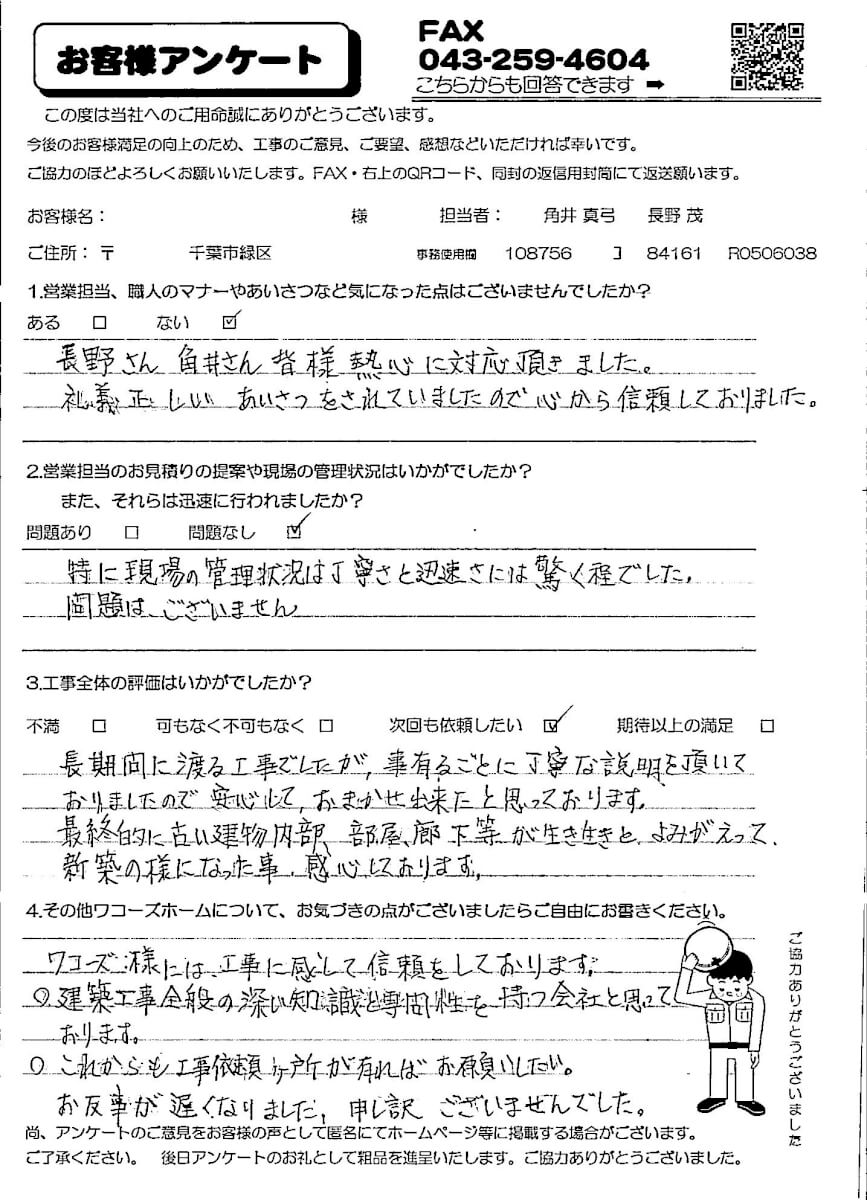 お客様アンケート
FAX
043-259-4604
こちらからも回答できます ➡
この度は当社へのご用命誠にありがとうございます。
今後のお客様満足の向上のため、工事のご意見、ご要望、感想などいただければ幸いです。
ご協力のほどよろしくお願いいたします。FAX・右上のQRコード、同封の返信用封筒にて返送願います。
お客様名： 様 担当者： 角井 真弓 長野 茂
ご住所：〒 千葉市緑区 事務使用欄 108756 コ 84161 R0506038
1.営業担当、職人のマナーやあいさつなど気になった点はございませんでしたか？
ある □ ない ☑
長野さん 角井さん 皆様 熱心に対応頂きました。
礼義正しい あいさつをされていましたので心から信頼しておりました。
2.営業担当のお見積りの提案や現場の管理状況はいかがでしたか？
また、それらは迅速に行われましたか？
問題あり □ 問題なし ☑
特に現場の管理状況は丁寧さと迅速さには驚く程でした。
問題は、ございません
3.工事全体の評価はいかがでしたか？
不満 □ 可もなく不可もなく □ 次回も依頼したい ☑ 期待以上の満足 □
長期間に渡る工事でしたが、事有るごとに丁寧な説明を頂いて
おりましたので 安心して、おまかせ出来たと思っております。
最終的に古い建物内部、部屋、廊下等が生き生きと、よみがえって、
新築の様になった事、感心しております。
4.その他ワコーズホームについて、お気づきの点がございましたらご自由にお書きください。
ワコーズ様には、工事に感して信頼をしております。
○建築工事全般の深い知識と専問性を持つ会社と思って
おります。
○これからも工事依頼ヶ所が有ればお願いしたい。
お返事が遅くなりました、申し訳ございませんでした。
尚、アンケートのご意見をお客様の声として匿名にてホームページ等に掲載する場合がございます。
ご了承ください。 後日アンケートのお礼として粗品を進呈いたします。ご協力ありがとうございました。
ご協力ありがとうございました